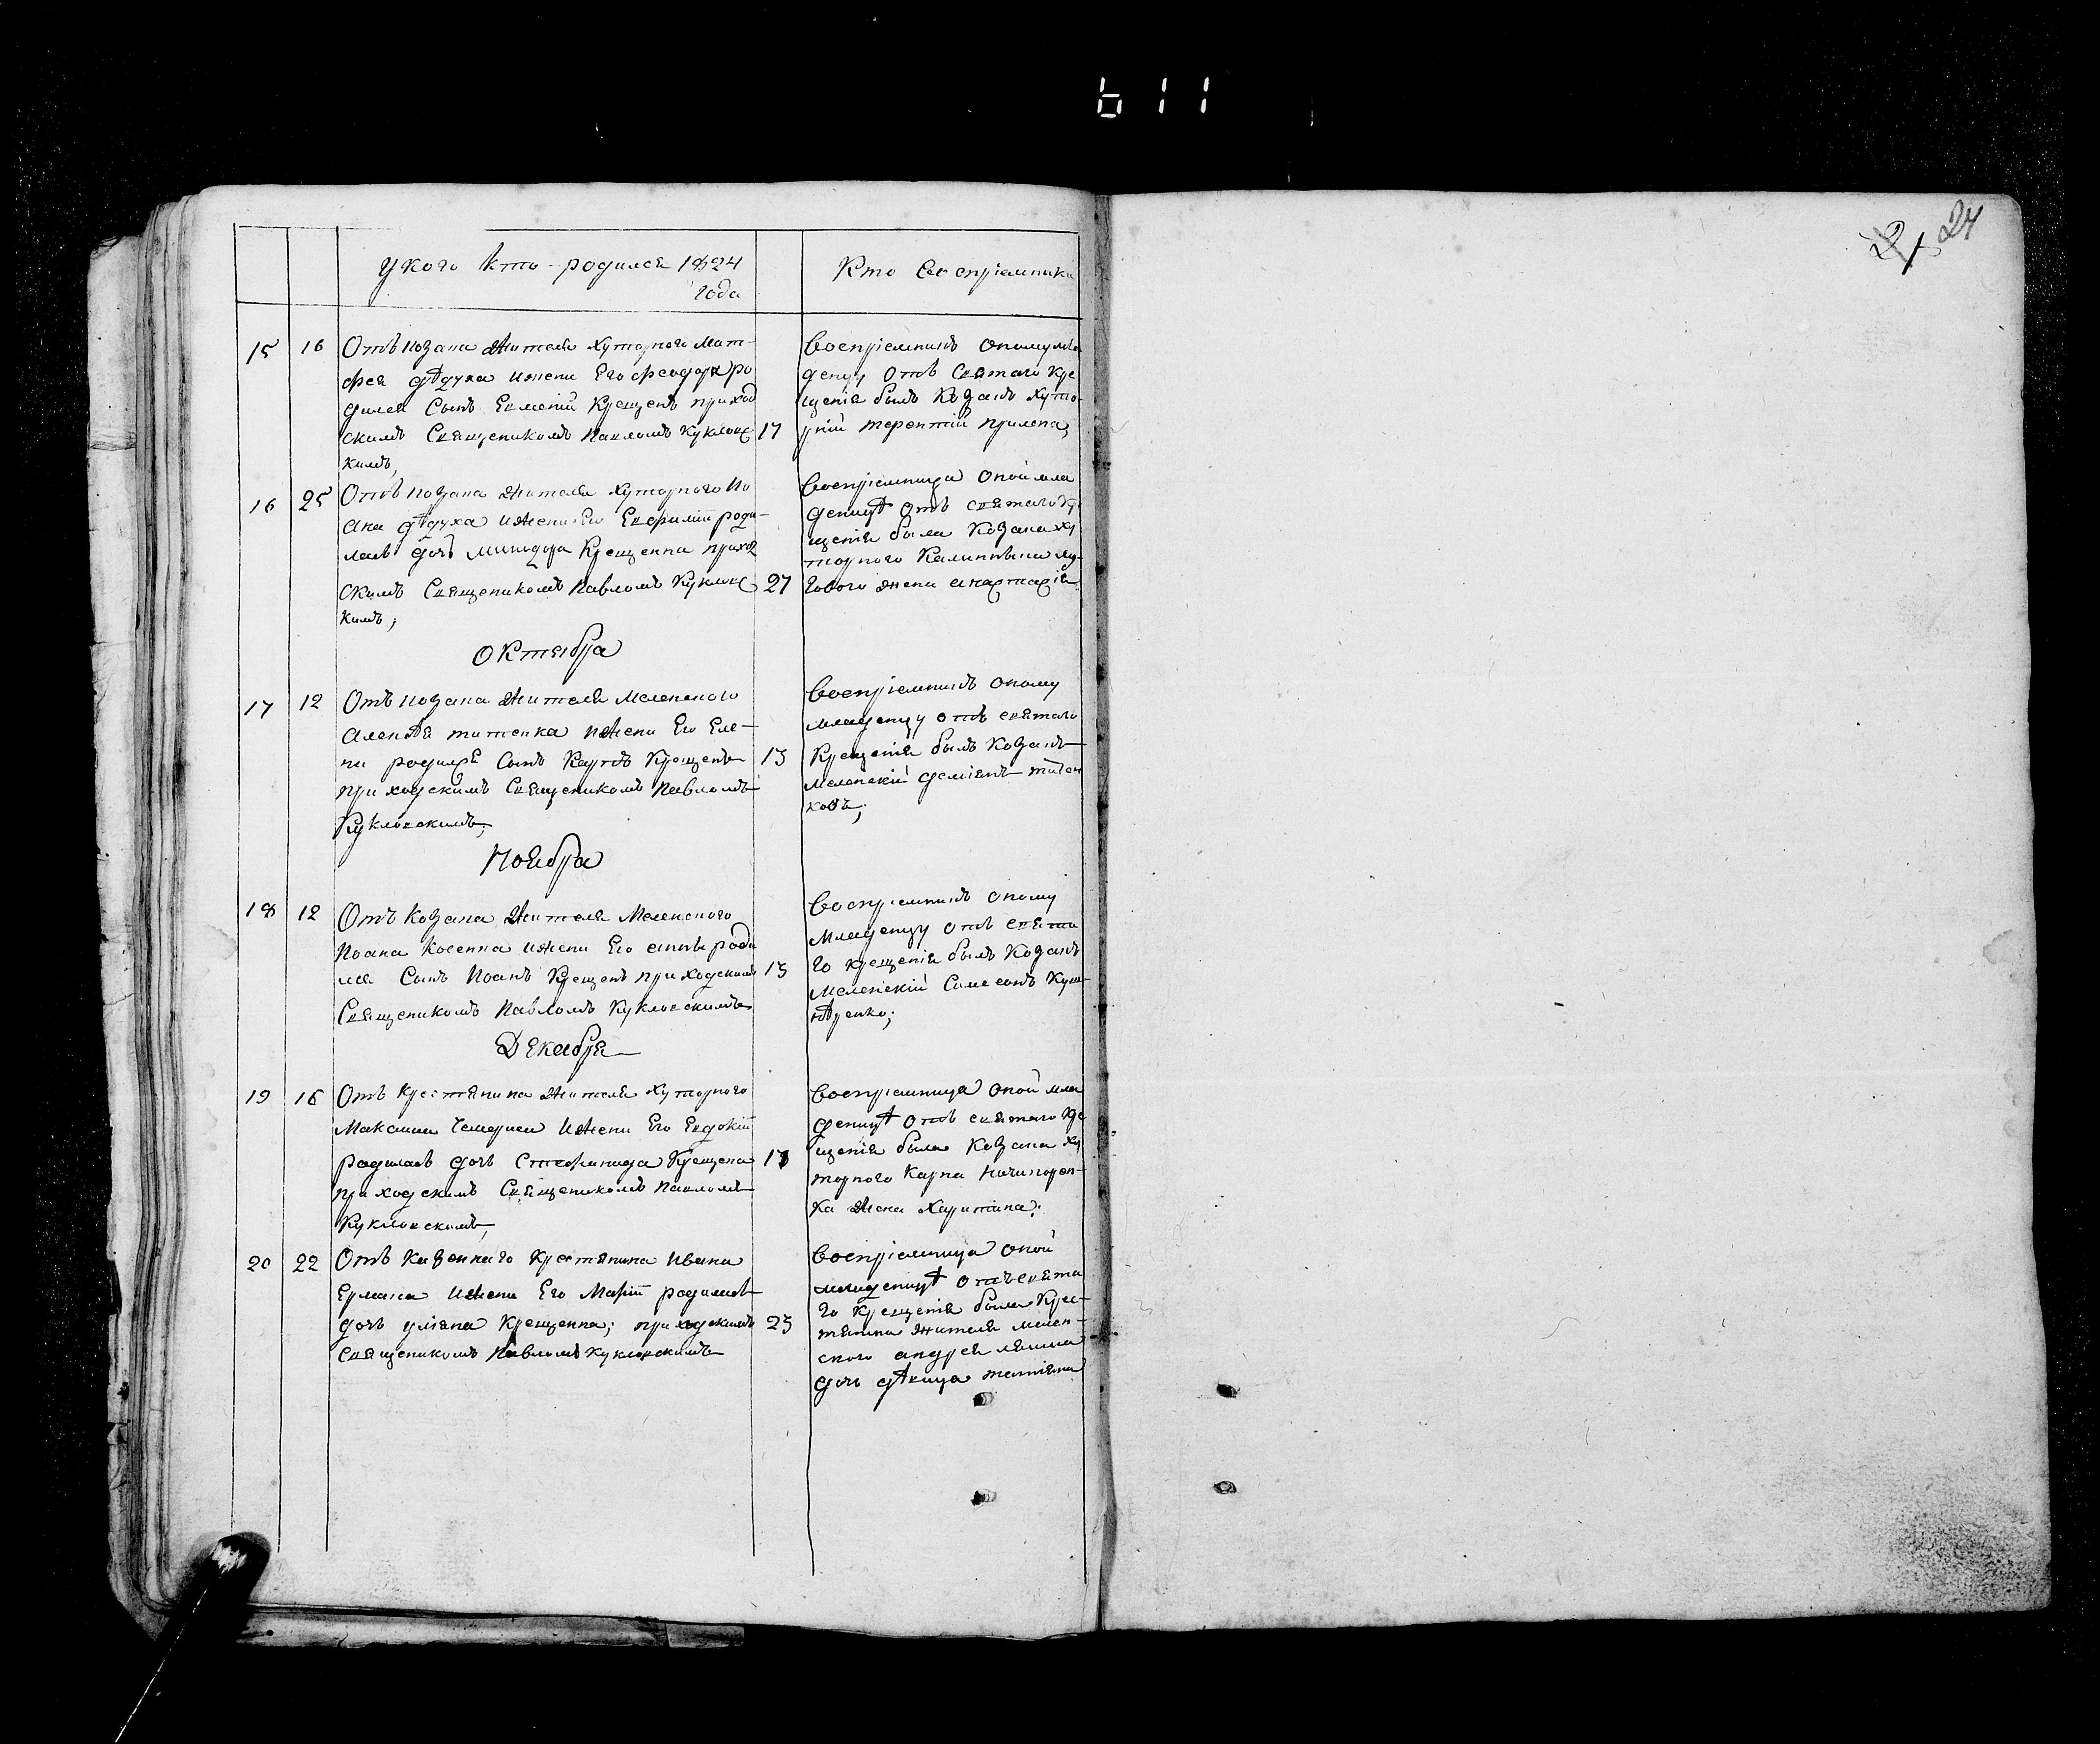 611
24
21
У кого кто родился 1824
года
Кто воспріемники
15 16 Отъ козака жителя хуторного Мат-
фея Дѣдуха и жени Его Феодоры ро
дился Сынъ Евменій Крещенъ приход
скимъ Священикомъ Павломъ Кукловс 17
кимъ,
Воспріемникъ оному мла
денцу Отъ Святаго Кре
щенія былъ Козакъ Хуто
рній Терентій Прилепа,
16 25 Отъ козака жителя хуторного Ио
ана Дѣдуха и жени Его Евфиміи роди-
лась дочь Минодора Крещенна приход
скимъ Священикомъ Павломъ Кукловс 27
кимъ;
Воспріемница оной мла
деницѣ Отъ святаго Кре
щенія была Козака ху
торного
жени
Октября
17 12 Отъ козака жителя Меленского
Алексѣя Титенка и жени Его Еле-
ни родился Сынъ Карпъ Крещенъ 13
приходскимъ Священикомъ Павломъ
Кукловскимъ;
Воспріемникъ оному
младенцу отъ святаго
Крещенія былъ Козакъ
Меленскій Деміянъ Титен
ковъ;
Ноября
18 12 Отъ Козака Жителя Меленского
Иоана и жени Его Анны роди
лся Сынъ Иоанъ Крещенъ приходскимъ 13
Священикомъ Павломъ Кукловскимъ
Воспріемникъ оному
Младенцу отъ Свята
го крещенія былъ Козакъ
Меленскій Симеонъ
Декабря
19 16 Отъ Крестянина Жителя Хуторного
Максима и Жени Его Евдокіи
родилась дочь Стефанида Крещена 17
приходскимъ Священикомъ Павломъ
Кукловскимъ,
Воспріемница оной мла
деницѣ отъ святаго Кре
щенія была Козака Ху
торного Карпа Ничипорен-
ка Жена Харитина;
20 22 Отъ Казенного Крестянина Ивана
Ермака и Жени Его Маріи родилась
дочь Уліяна Крещенна; приходскимъ 23
Священикомъ Павломъ Кукловскимъ
Воспріемница оной
младеницѣ отъ Свята
го Крещенія была Крес-
тянина жителя мелен-
ского Андрея
дочь дѣвица Татіяна